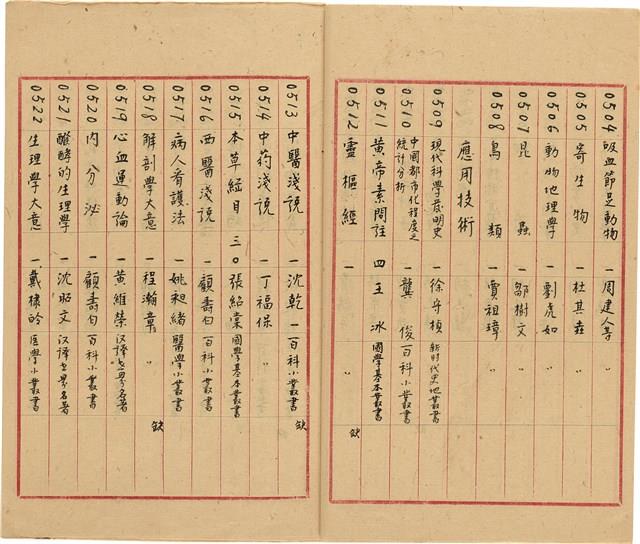 0504 吸血節足動物 一 周建人等 〃
0505 寄生物 一 杜其垚 〃
0506 動物地理學 一 劉虎如 〃
0507 昆蟲 一 鄒樹文 〃
0508 鳥類 一 賈祖璋 〃
應用技術
0509 現代科學發明史 一 徐守楨 新時代史地叢書
0510 中國都市化程度之統計分析 一 龔俊 百科小叢書
0511 黃帝素問註 四 王冰 國學基本叢書
0512 靈樞經 一 缺
0513 中醫淺說 一 沈乾一 百科小叢書
0514 中药淺说 一 丁福保 〃
0515 本草綱目 三〇 張紹棠 國學基本叢書
0516 西醫淺说 一 顧壽白 百科小叢書
0517 病人看護法 一 姚昶緒 醫學小叢書
0518 解剖學大意 一 程瀚章 〃 缺
0519 心血運動論 一 黃維榮 汉译世界名著
0520 內分泌 一 顧壽白 百科小叢書
0521 醱酵的生理學 一 沈昭文 汉译世界名著
0522 生理學大意 一 戴棣齡 医學小叢書